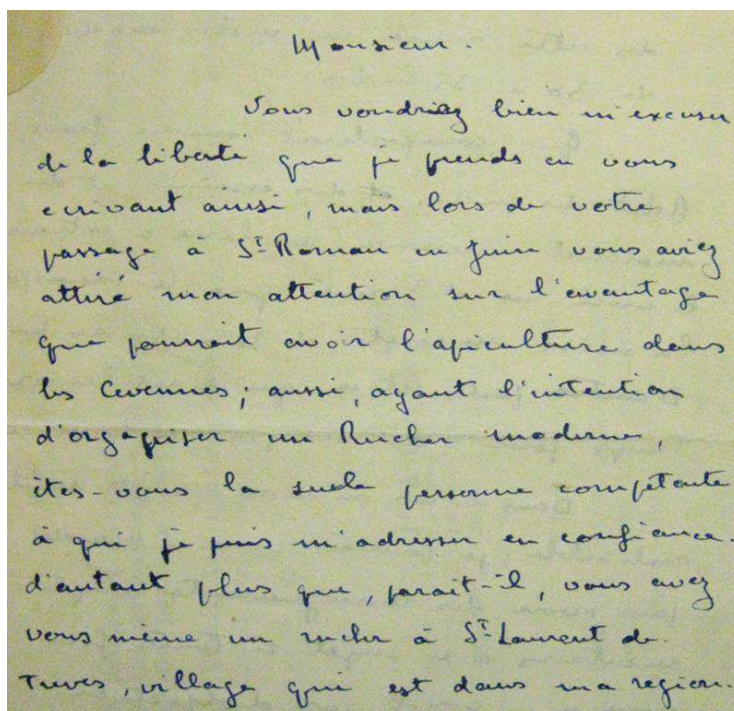 Monsieur.
Vous voudriez bien m'excuser
de la liberté que je prends en vous
ecrivant aussi, mais lors de votre
passage à St Roman en Juin vous aviez
attiré mon attention sur l'avantage
que pourrait avoir l'apiculture dans
les Cevennes; aussi, ayant l'intention
d'organiser un Rucher moderne,
êtes-vous la seule personne compétente
à qui je puis m'adresser en confiance.
d'autant plus que, parait-il, vous avez
vous même un rucher à St Laurent de
Treves, village qui est dans ma region.